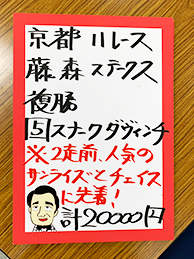 京都11レース
藤森ステークス
複勝
5スナークダヴィンチ
※2走前、人気の
サンライズとチェイス
に先着!
計20000円